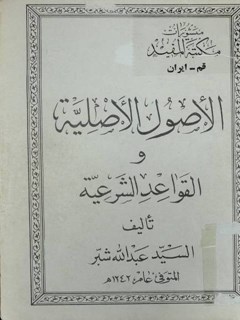 منشورات
مكتبة المفيد
قم - ايران
الأصول الأصلية
و
القواعد الشرعية
تأليف
السيد عبدالله شبر
المتوفى عام ١٢٤٢ هـ